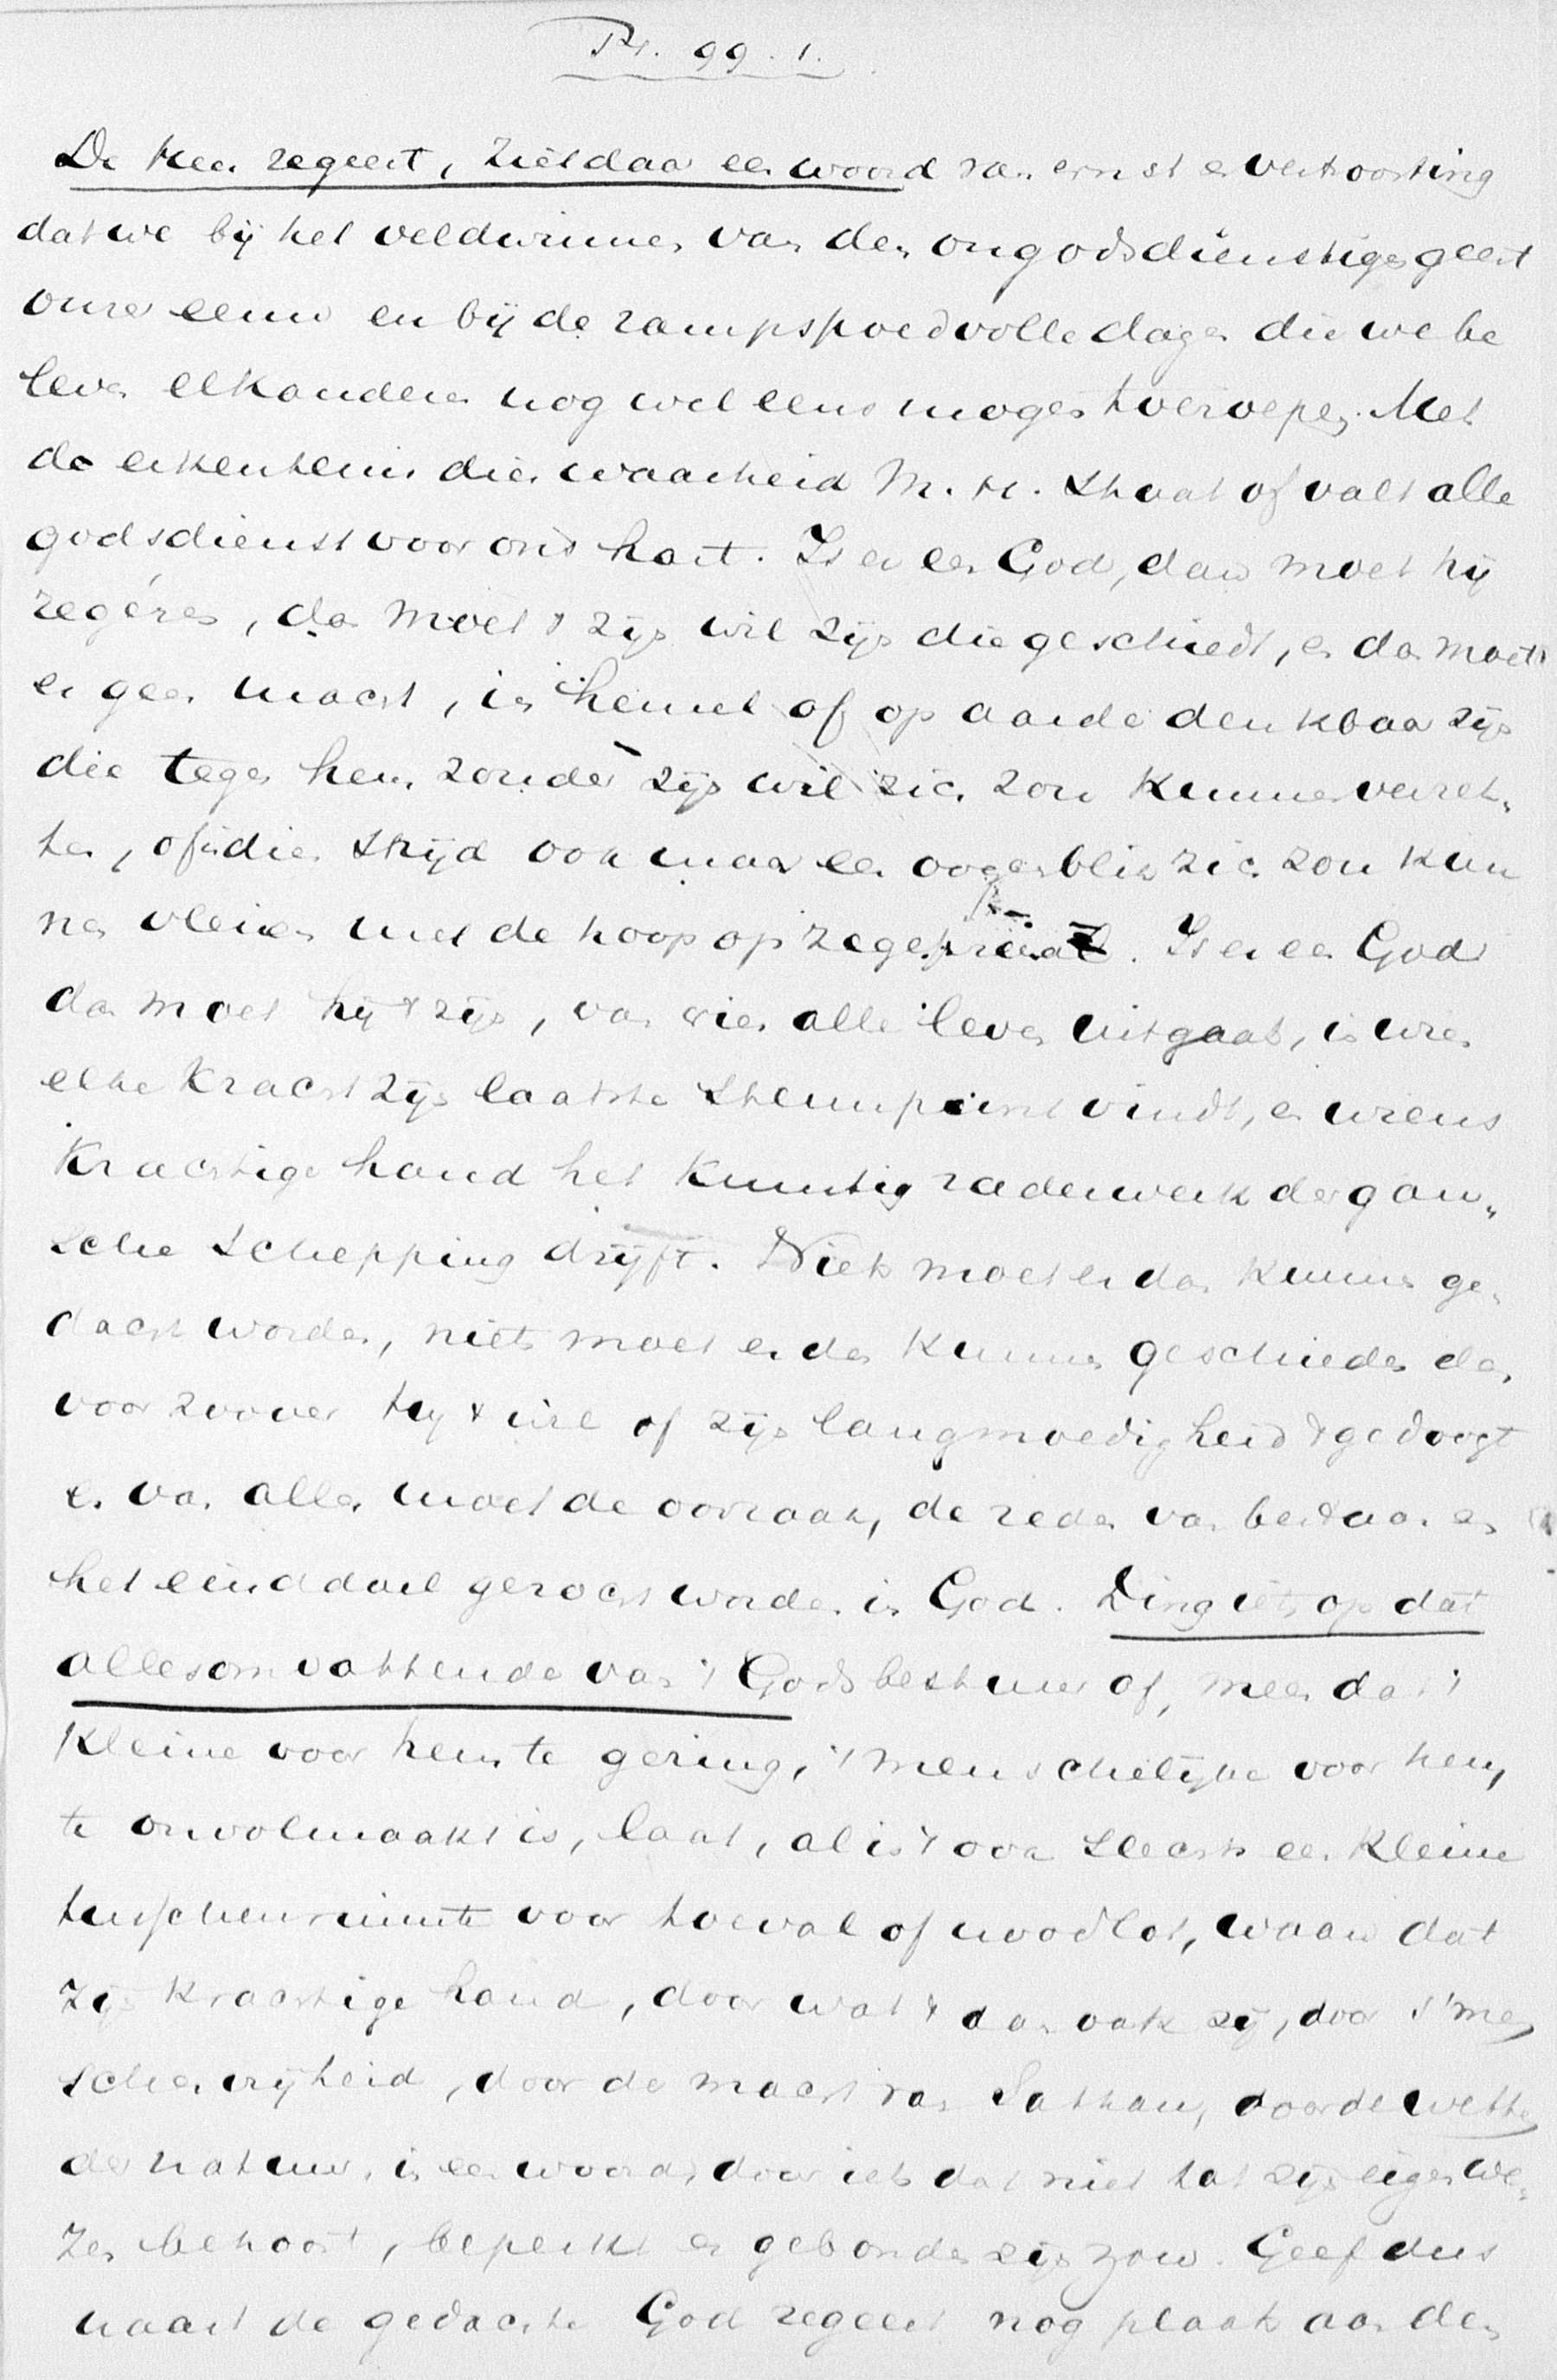 Ps. 99.1.
De Heer regeert, ziet daar een woord van ernst en vertroosting
dat we bij het veldwinnen van den ongodsdienstigen geest
onzer eeuw en bij de rampspoedvolle dagen die we be
leven elkanderen nog wel eens mogen toeroepen. Met
de erkentenis dier waarheid M. H. staat of valt alle
godsdienst voor ons hart. Is er een God, dan moet hij
regéren, dan moet 't zijn wil zijn die geschiedt, en dan moet
er geen macht, in hemel of op aarde denkbaar zijn
die tegen hem, zonder zijn wil zich zou kunnen verzet„
ten, of in dien strijd ook maar een oogenblik zich zou kun
nen vleien met de hoop op zegepraal. Is er een God
dan moet hij 't zijn, van wien alle leven uitgaat, in wien
elke kracht zijn laatste steunpunt vindt, en wiens
krachtige hand het kunstig raderwerk der gan„
sche schepping drijft. Niets moet er dan kunnen ge„
dacht worden, niets moet er dan kunnen geschieden dan
voor zoover hij 't wil of zijn langmoedigheid 't gedoogt
en van alles moet de oorzaak, de reden van bestaan en
het einddoel gezocht worden in God. Ding iets op dat
allesomvattende van 't Godsbestuur af, meen dat 't
kleine voor hem te gering, 't menschelijke voor hem
te onvolmaakt is, laat, al is 't ook slechts een kleine
tusschenruimte voor toeval of noodlot, waan dat
zijn krachtige hand, door wat 't dan ook zij, door 's men
schen vrijheid, door de macht van Sathan, door de wetten
der natuur, in een woord, door iets dat niet tot zijn eigen we„
zen behoort, beperkt en gebonden zijn zou. Geef dus
naast de gedachte God regeert nog plaats aan den